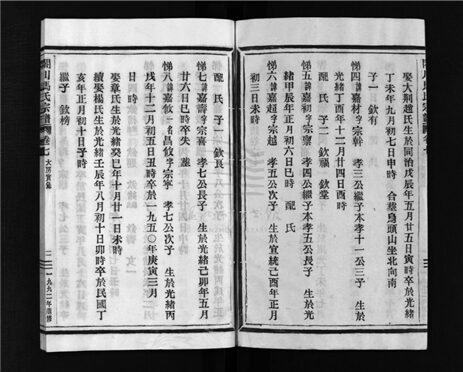 娶大荆趙氏生於同治戊辰年五月廿五日寅時卒於光緒
丁未年九月初七日申時 合葬烏頭山坐北向南
子一 欽有
悌四 嘉材 字宗幹 孝三公繼子本孝十一公三子 生於
光緒丁酉年十二月廿四日酉時
配 氏 子二 欽福 欽堂
悌五 諱嘉壽 字宗壽 孝四公繼子本孝五公長子 生於光
緒甲辰年正月初六日巳時 配 氏
悌六 諱嘉超 字宗超 孝五公次子 生於宣統己酉年正月
初三日未時
配 氏 子一 欽長
悌七 諱嘉濤 字宗喜 孝七公長子 生於光緒己卯年五月
廿六日巳時卒失 葬
悌八 諱嘉 名昌 字宗寧 孝七公次子 生於光緒丙
戌年十二月初五日丑時卒於一九五〇年庚寅三月
日時
娶章氏生於光緒癸巳年十月廿一日未時
續娶楊氏生於光緒壬辰年八月初十日卯時卒於民國丁
亥年正月初十日子時
繼子 欽榜
馮氏宗譜 卷七 大房實錄
一九九二年重修